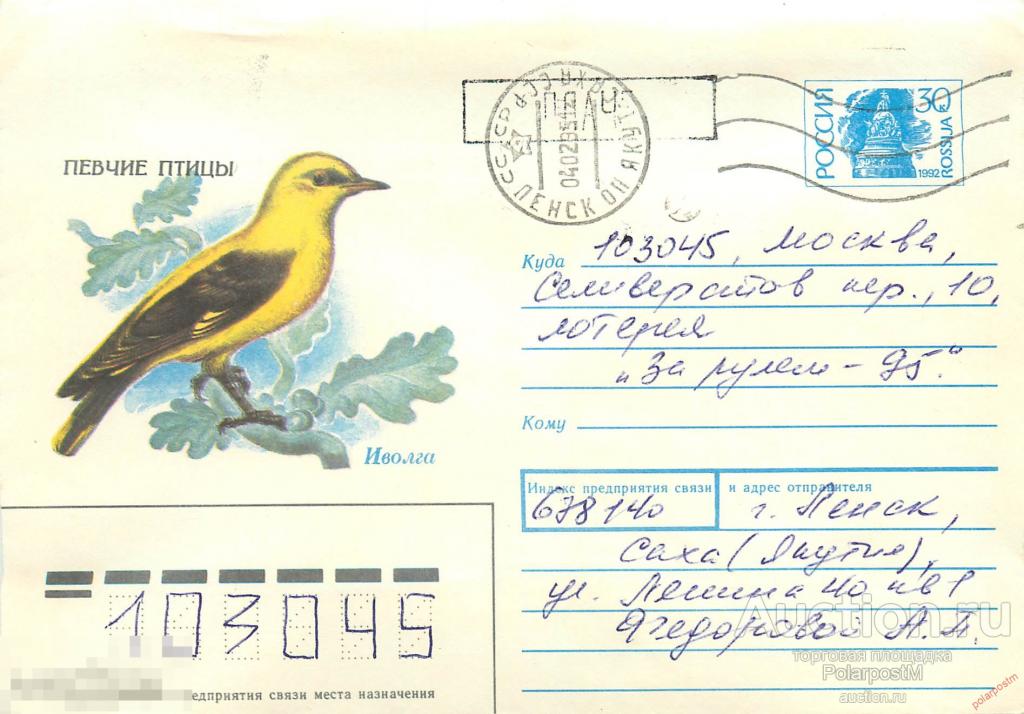 ПЕВЧИЕ ПТИЦЫ
Иволга
СССР ЛЕНСК ОН ЯКУТ
040295
РОССИЯ
30
к
ROSSIJA
1992
Куда 103045, Москва,
Селиверстов пер., 10,
лотерея
"За рулем - 95."
Кому
Индекс предприятия связи и адрес отправителя
678140 г. Ленск,
Саха (Якутия),
ул. Ленина 40 кв 1
Федоровой А.П.
103045
редприятия связи места назначения
Auction.ru
торговая площадка
PolarpostM
auction.ru
polarpostm